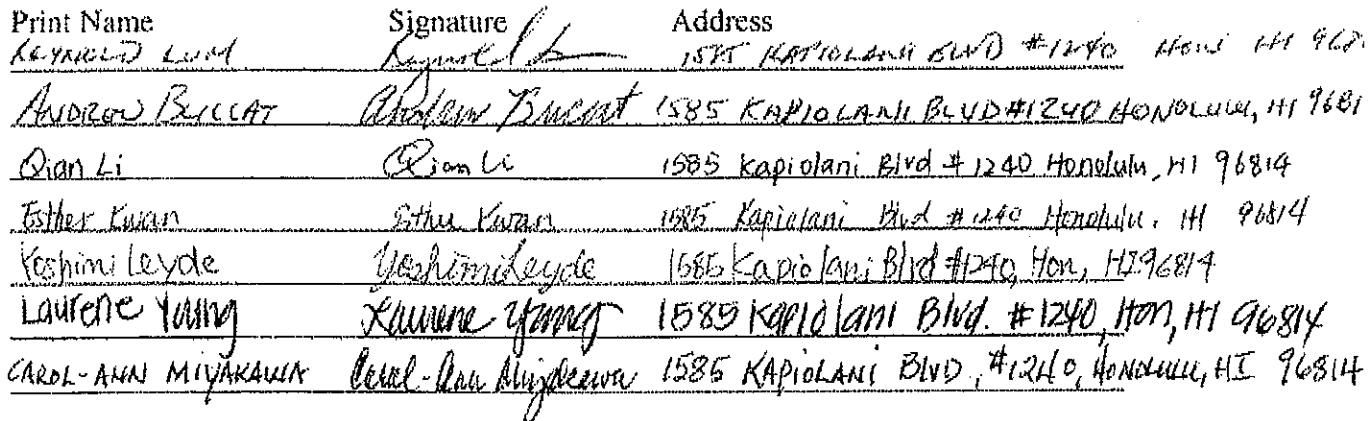 Print Name Signature Address
REYNOLD LUM 1585 KAPIOLANI BLVD #1240 HON HI 968
ANDREW BUCCAT Andrew Buccat 1585 KAPIOLANI BLVD #1240 HONOLULU, HI 9681
Qian Li Qian Li 1585 Kapiolani Blvd # 1240 Honolulu, HI 96814
Esther Kwan Esther Kwan 1585 Kapiolani Blvd # 1240 Honolulu, HI 96814
Yoshimi Leyde Yoshimi Leyde 1585 Kapiolani Blvd #1240, Hon, HI 96814
Laurene Young Laurene Young 1585 Kapiolani Blvd. #1240, Hon, HI 96814
CAROL-ANN MIYAKAWA Carol-Ann Miyakawa 1585 KAPIOLANI BLVD, #1240, HONOLULU, HI 96814